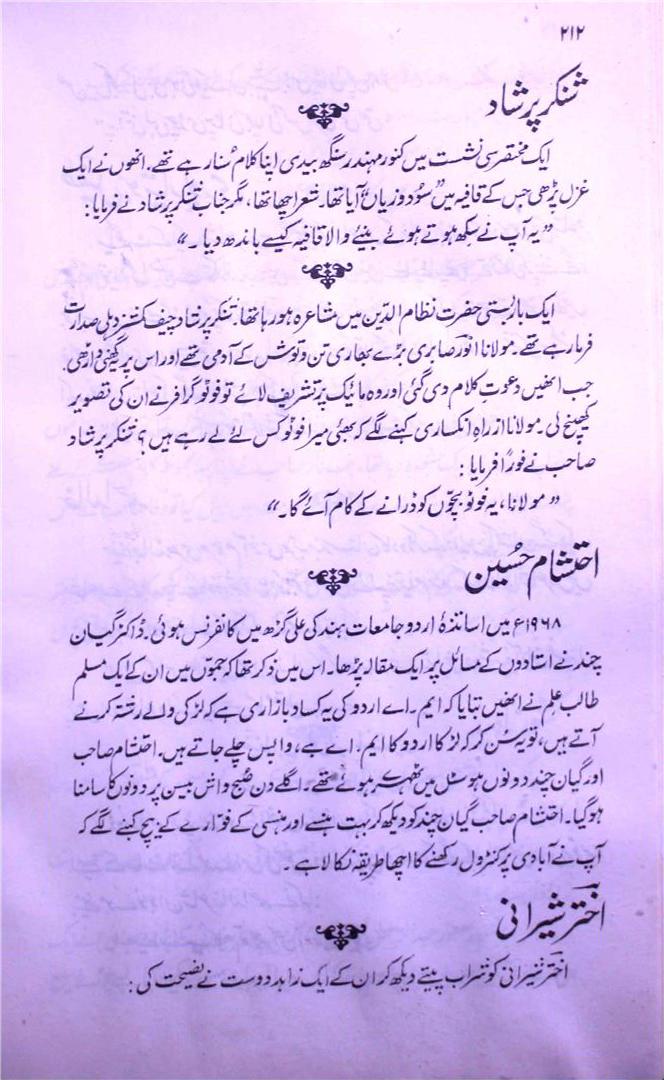 ۲۱۲
شنکر پرشاد
ایک مختصر سی نشست میں کنور مہندر سنگھ بیدی اپنا کلام سُنا رہے تھے۔ انھوں نے ایک
غزل پڑھی جس کے قافیہ میں ”سُود و زیاں“ آیا تھا۔ شعر اچھا تھا، مگر جناب شنکر پرشاد نے فرمایا:
”یہ آپ نے سکھ ہوتے ہوئے بنیے والا قافیہ کیسے باندھ دیا۔“
ایک بار بستی حضرت نظام الدین میں مشاعرہ ہو رہا تھا۔ شنکر پرشاد چیف کمشنر دہلی صدارت
فرما رہے تھے۔ مولانا انورؔ صابری بڑے بھاری تن و توش کے آدمی تھے اور اس پر گھنی داڑھی۔
جب انھیں دعوتِ کلام دی گئی اور وہ مائیک پر تشریف لائے تو فوٹو گرافر نے ان کی تصویر
کھینچ لی۔ مولانا از راہِ انکساری کہنے لگے کہ بھئی میرا فوٹو کس لئے لے رہے ہیں؟ شنکر پرشاد
صاحب نے فوراً فرمایا:
”مولانا، یہ فوٹو بچّوں کو ڈرانے کے کام آئے گا۔“
احتشام حُسین
۱۹۶۸ء میں اساتذۂ اردو جامعات ہند کی علی گڑھ میں کانفرنس ہوئی۔ ڈاکٹر گیان
چند نے استادوں کے مسائل پر ایک مقالہ پڑھا۔ اس میں ذکر تھا کہ جموں میں ان کے ایک مسلم
طالب علم نے انھیں بتایا کہ ایم۔ اے اردو کی یہ کساد بازاری ہے کہ لڑکی والے رشتہ کرنے
آتے ہیں، تو یہ سُن کر کہ لڑکا اردو کا ایم۔ اے ہے، واپس چلے جاتے ہیں۔ احتشام صاحب
اور گیان چند دونوں ہوسٹل میں ٹھہرے ہوئے تھے۔ اگلے دن صُبح واش بیسن پر دونوں کا سامنا
ہوگیا۔ احتشام صاحب گیان چند کو دیکھ کر بہت ہنسے اور ہنسی کے فوّارے کے بیچ کہنے لگے کہ
آپ نے آبادی پر کنٹرول رکھنے کا اچھا طریقہ نکالا ہے۔
اخترؔ شیرانی
اخترؔ شیرانی کو شراب پیتے دیکھ کر ان کے ایک زاہد دوست نے نصیحت کی: